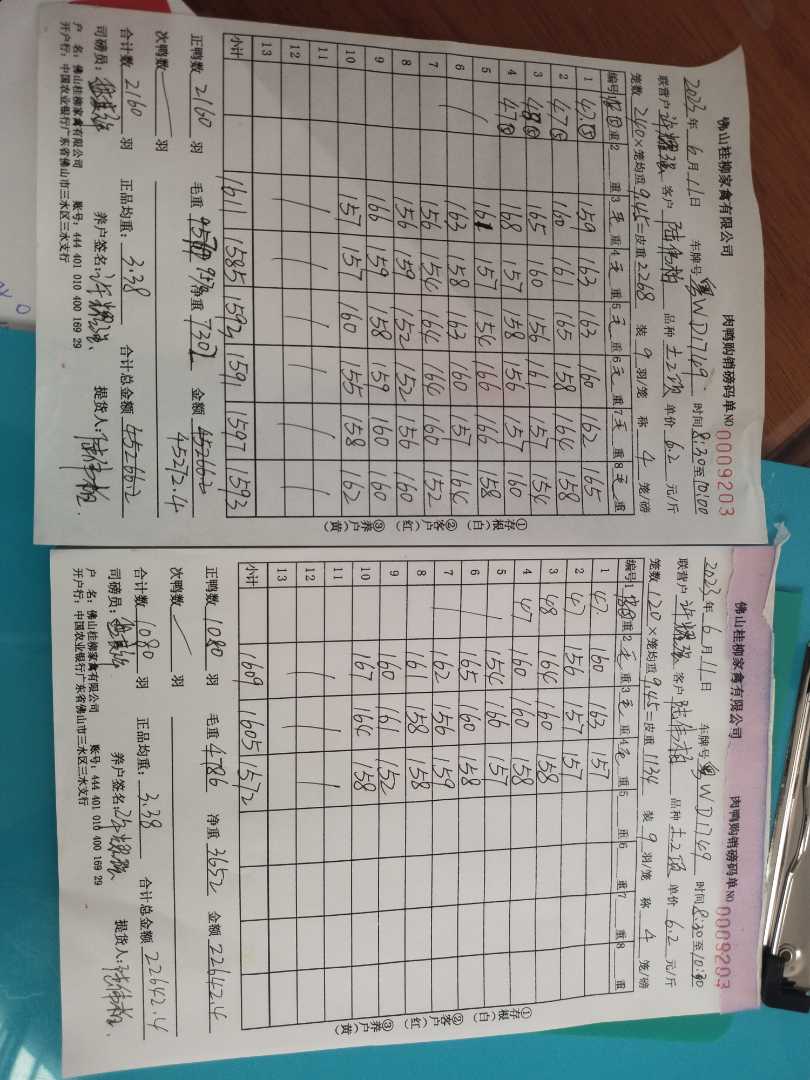 佛山桂柳家禽有限公司 肉鸭购销磅码单 NO 0009203
2023年6月11日 车牌号 粤WD1749 时间 8:30至10:00
联营户 许耀强 客户 品种 土2项 单价 6.2 元/斤
笼数 240×笼均重 9.45=皮重 2268 装 9 羽/笼 称 4 笼/磅
编号 重2 重3 毛 重4 毛 重5 毛 重6 毛 重7 毛 重8 毛 重
1 47.⑤ 159 163 163 160 162 165
2 47⑤ 160 161 165 158 164 158
3 48⑤ 165 160 156 161 157 154
4 47⑤ 168 157 158 156 157 160
5 161 157 154 166 166 158
6 163 158 163 160 157 164
7 156 154 164 164 160 152
8 156 159 152 152 156 160
9 166 159 158 159 160 160
10 157 157 160 155 158 162
11
12
13
小计 1611 1585 1593 1591 1597 1593
①存根(白) ②客户(红) ③养户(黄)
正鸭数 2160 羽 毛重 净重 7302 金额 45266.2
45272.4
次鸭数 羽
合计数 2160 羽 正品均重: 3.38 合计总金额 45266.2
司磅员: 养户签名: 许耀强 提货人:
户 名: 佛山桂柳家禽有限公司 账号: 444 401 010 400 169 29
开户行: 中国农业银行广东省佛山市三水区三水支行
佛山桂柳家禽有限公司 肉鸭购销磅码单 NO 0009204
2023年6月11日 车牌号 粤WD1749 时间 8:30至10:30
联营户 许耀强 客户 品种 土2项 单价 6.2 元/斤
笼数 120×笼均重 9.45=皮重 1134 装 9 羽/笼 称 4 笼/磅
编号1 重2 毛 重3 毛 重4 毛 重5 重6 重7 重8 重
1 47. 160 163 157
2 47 156 157 157
3 48 164 160 158
4 47 160 160 158
5 154 166 157
6 165 160 158
7 162 156 159
8 161 158 158
9 160 161 152
10 167 164 158
11
12
13
小计 1609 1605 1572
①存根(白) ②客户(红) ③养户(黄)
正鸭数 1080 羽 毛重 4786 净重 3652 金额 22642.4
次鸭数 羽
合计数 1080 羽 正品均重: 3.38 合计总金额 22642.4
司磅员: 养户签名: 许耀强 提货人:
户 名: 佛山桂柳家禽有限公司 账号: 444 401 010 400 169 29
开户行: 中国农业银行广东省佛山市三水区三水支行